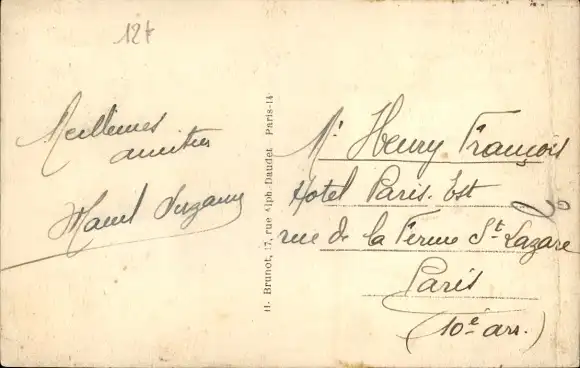 12f
Meilleures
amitiés
H. Brunot, 17, rue Alph.-Daudet Paris-14
Mr Henry François
Hotel Paris. Est
rue de la Ferme St Lazare
Paris
(10e arr.)